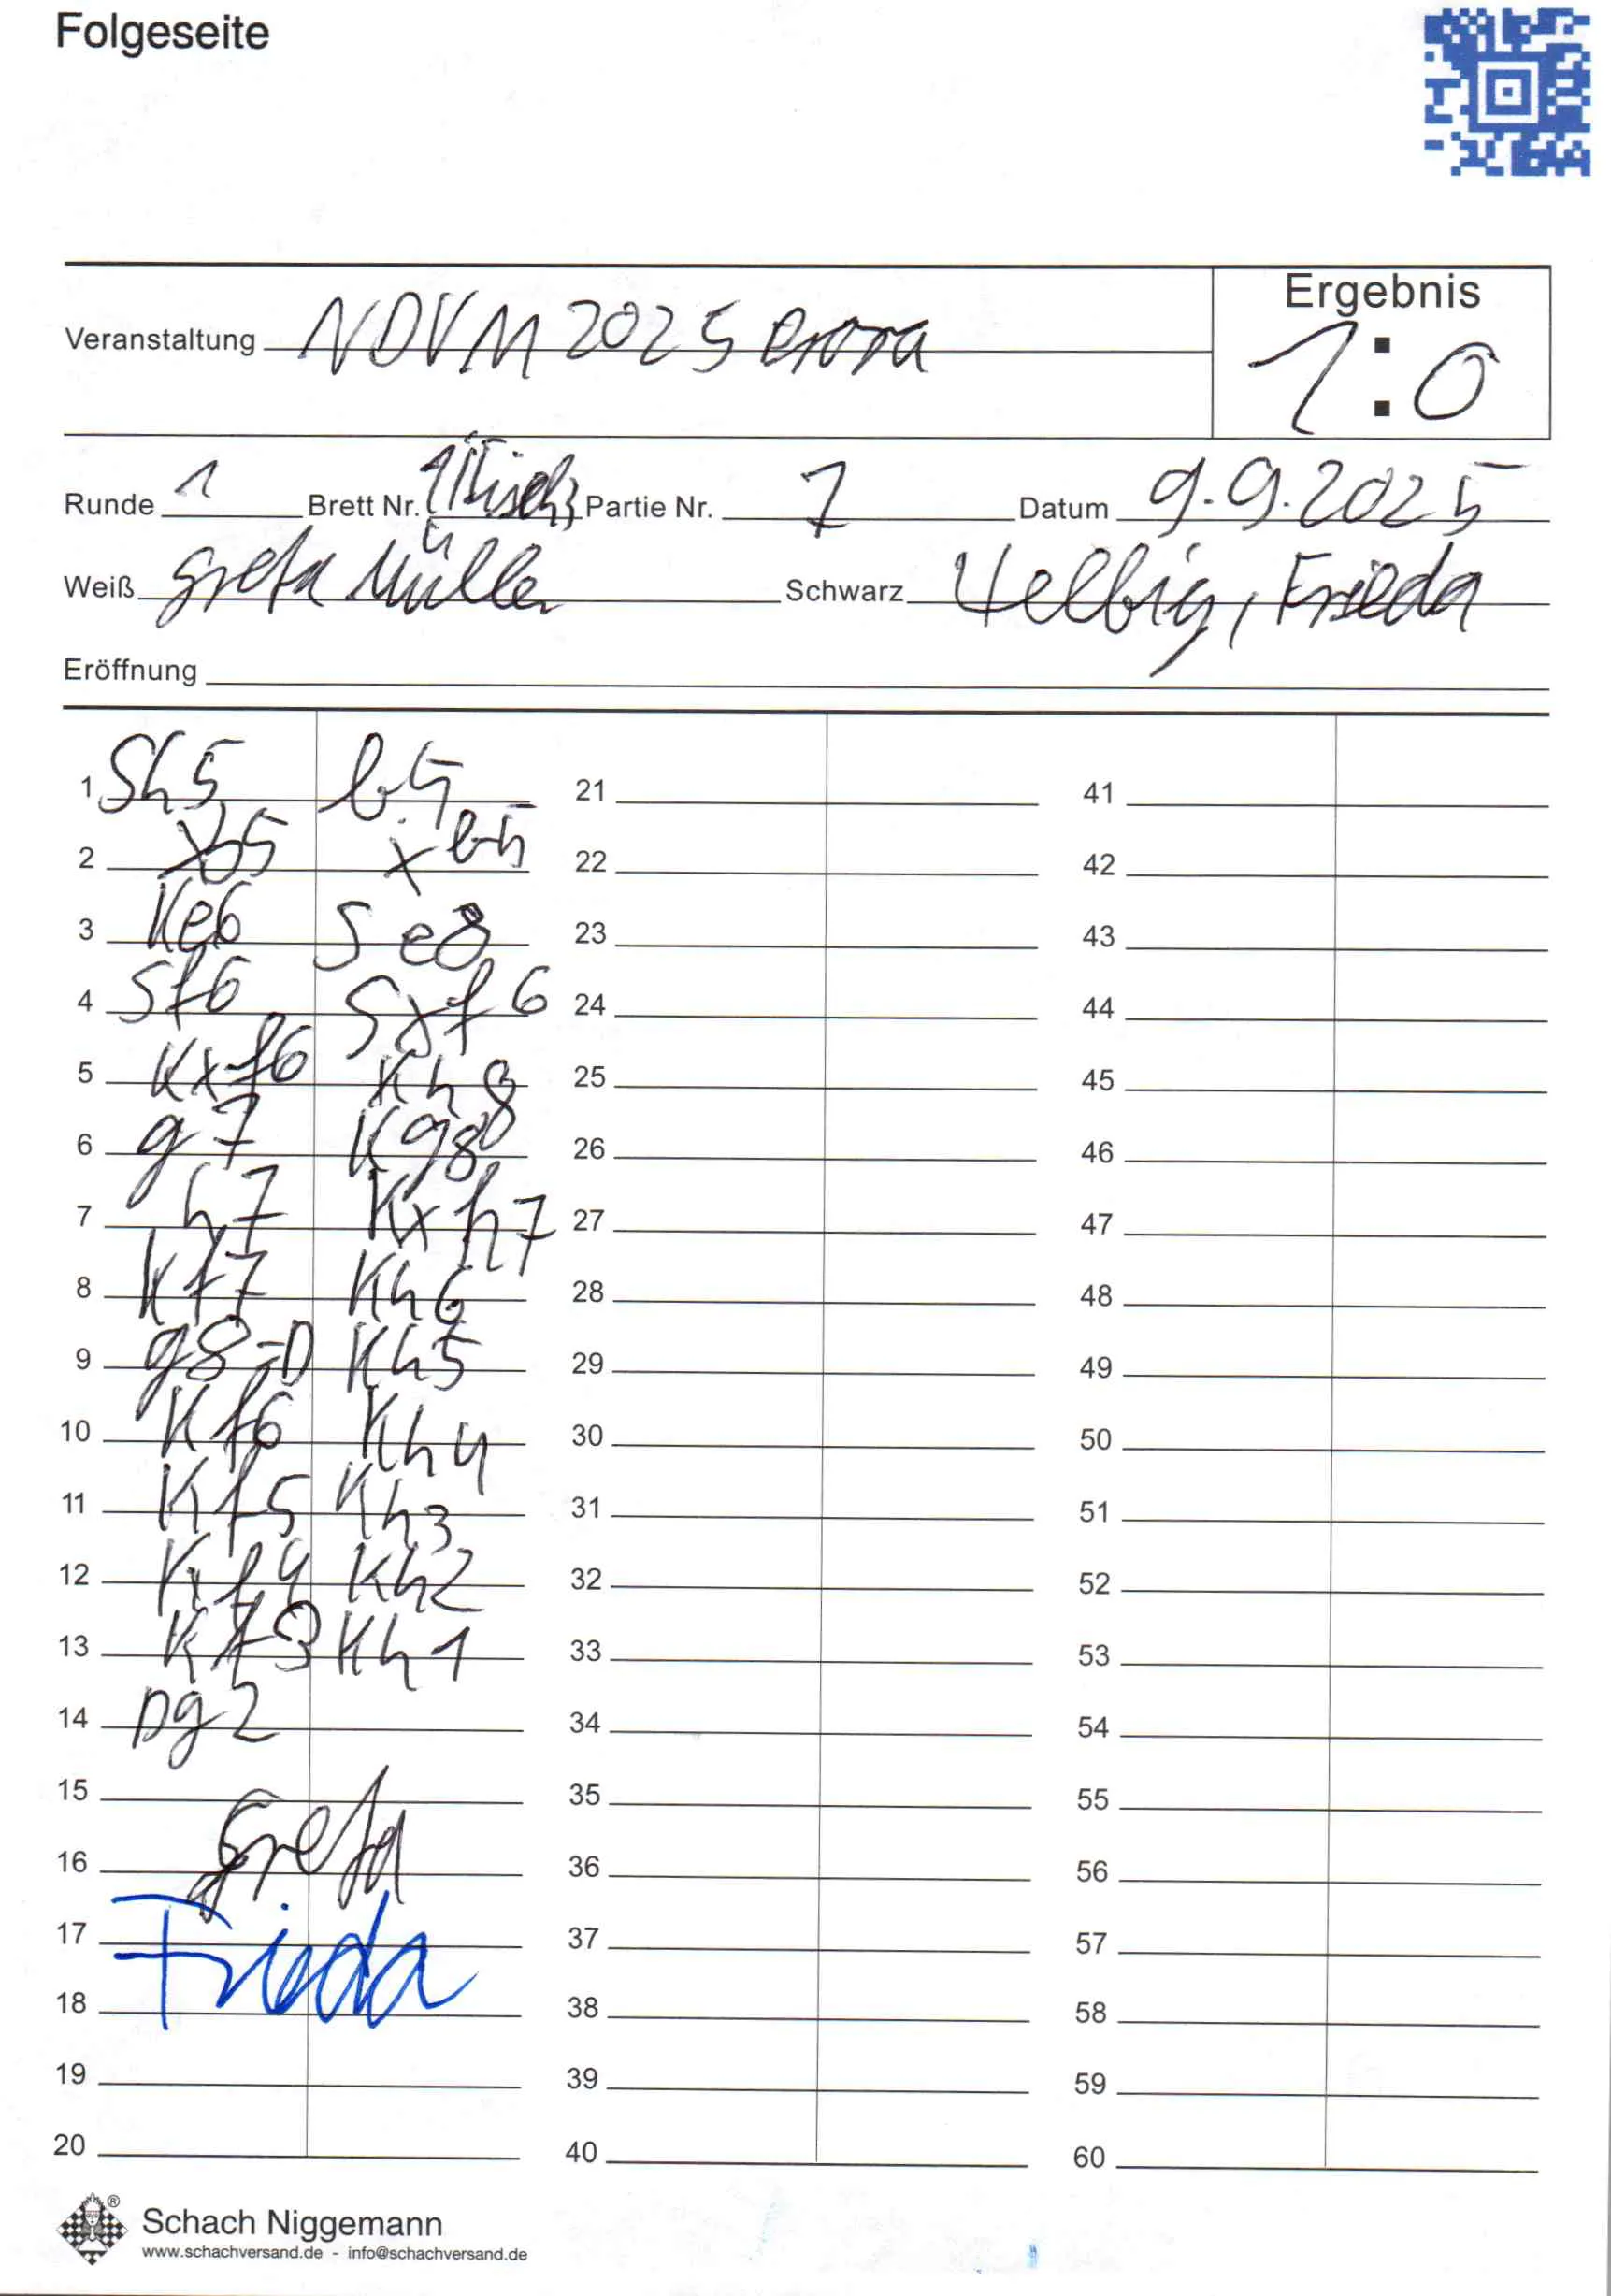 Folgeseite
Ergebnis
Veranstaltung NDVM 2025
1:0
Runde 1 Brett Nr. 1 Partie Nr. 1 Datum 9.9.2025
Weiß Greta Müller Schwarz Helbig, Frieda
Eröffnung
1 Sh5 b5 21 41
2 xb5 xb5 22 42
3 Ke6 Se8 23 43
4 Sf6 Sxf6 24 44
5 Kxf6 Kh8 25 45
6 g7 Kg8 26 46
7 h7 Kxh7 27 47
8 Kf7 Kh6 28 48
9 g8=D Kh5 29 49
10 Kf6 Kh4 30 50
11 Kf5 Kh3 31 51
12 Kf4 Kh2 32 52
13 Kf3 Kh1 33 53
14 Dg2 34 54
15 35 55
16 Greta 36 56
17 Frieda 37 57
18 38 58
19 39 59
20 40 60
Schach Niggemann ®
www.schachversand.de - info@schachversand.de